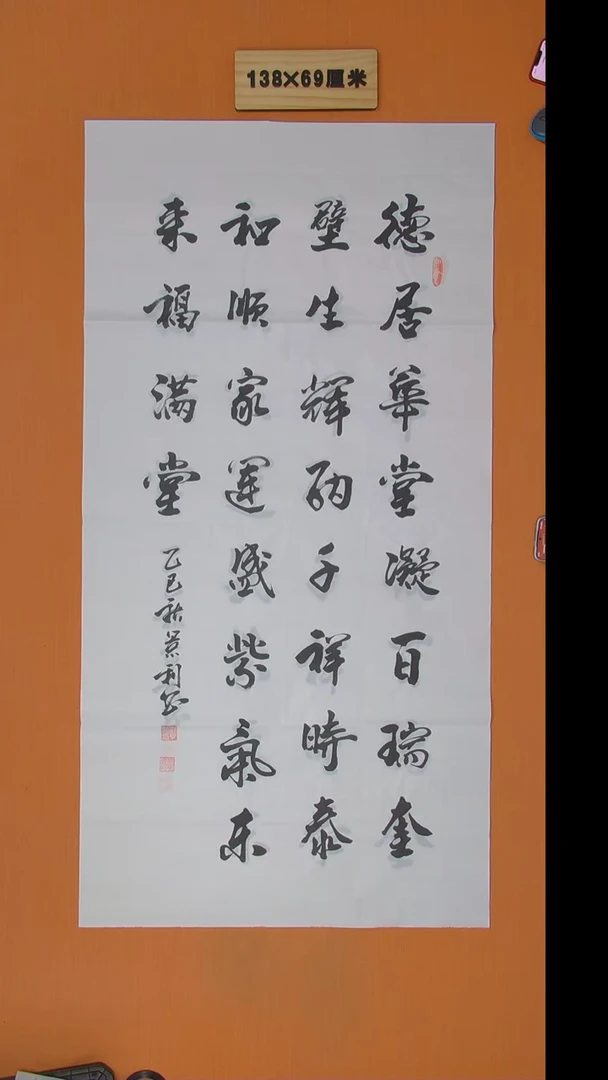 138×69厘米
德居華堂凝百瑞奎
壁生輝納千祥時泰
和順家運盛紫氣东
来福满堂
乙巳秋景利书